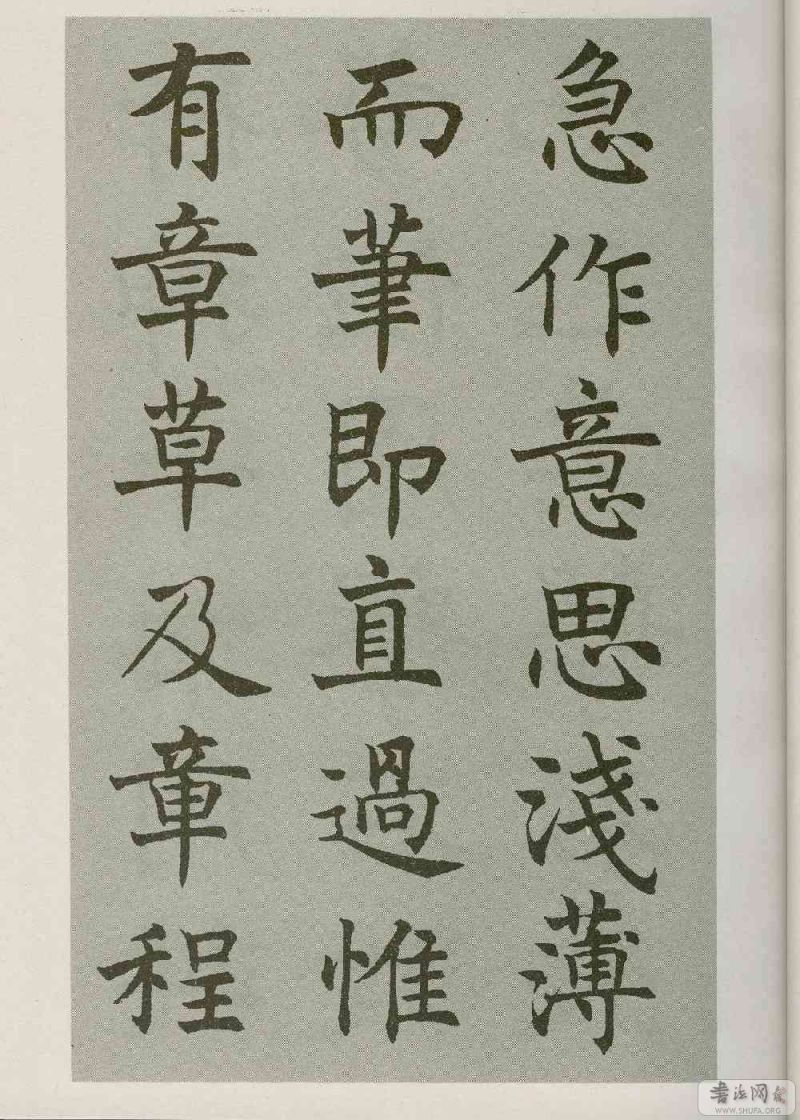 急作意思淺薄
而筆即直過惟
有章草及章程
書法网
WWW.SHUFA.ORG